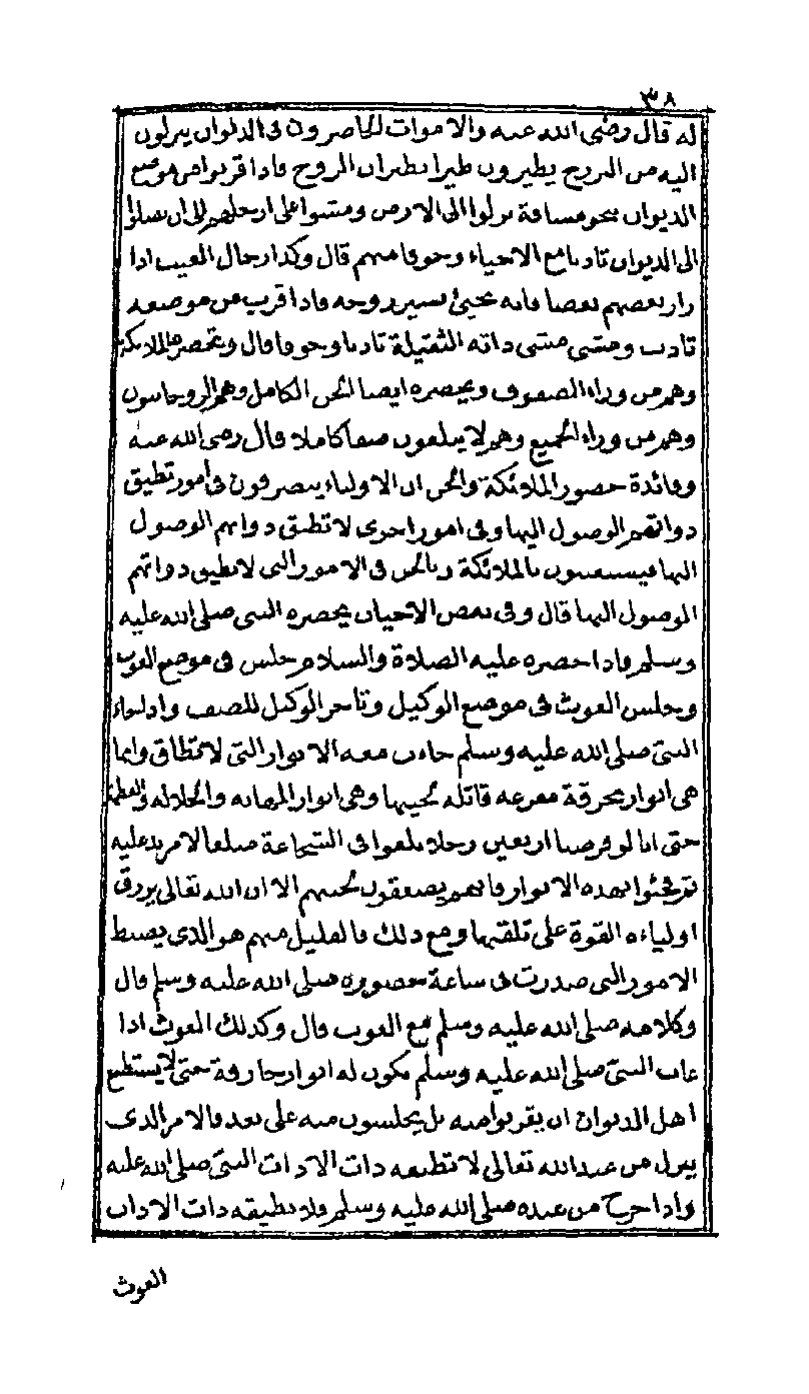 ٣٨
له قال رضى الله عنه والاموات الحاضرون فى الديوان ينزلون
اليه من البرزخ يطيرون طيرا بطيران الروح فاذا قربوا من موضع
الديوان بنحو مسافة نزلوا الى الارض ومشوا على ارجلهم الى ان يصلوا
الى الديوان تادبا مع الاحياء وخوفا منهم قال وكذا رجال الغيب اذا
زار بعضهم بعضا فانه يجيئ بسير روحه فاذا قرب من موضعه
تادب ومشى مشى ذاته الثقيلة تادبا وخوفا قال وتحضره الملائكة
وهم من وراء الصفوف ويحضره ايضا الجن الكامل وهم الروحانيون
وهم من وراء الجميع وهم لا يبلغون صفا كاملا قال رضى الله عنه
وفائدة حضور الملائكة والجن ان الاولياء يتصرفون فى امور تطيق
ذواتهم الوصول اليها وفى امور اخرى لا تطيق ذواتهم الوصول
اليها فيستعينون بالملائكة وبالجن فى الامور التى لا تطيق ذواتهم
الوصول اليها قال وفى بعض الاحيان يحضره النبى صلى الله عليه
وسلم فاذا حضره عليه الصلاة والسلام جلس فى موضع الغوث
وجلس الغوث فى موضع الوكيل وتاخر الوكيل للصف واذا جاء
النبى صلى الله عليه وسلم جاءت معه الانوار التى لا تطاق وانما
هى انوار محرقة مفزعة قاتلة لحينها وهى انوار المهابة والجلالة والعظمة
حتى انا لو فرضنا اربعين رجلا بلغوا فى الشجاعة مبلغا لا مزيد عليه
ثم فجئوا بهذه الانوار فانهم يصعقون لحينهم الا ان الله تعالى يرزق
اولياءه القوة على تلقيها ومع ذلك فالقليل منهم هو الذى يضبط
الامور التى صدرت فى ساعة حضوره صلى الله عليه وسلم قال
وكلامه صلى الله عليه وسلم مع الغوث قال وكذلك الغوث اذا
غاب النبى صلى الله عليه وسلم تكون له انوار خارقة حتى لا يستطيع
اهل الديوان ان يقربوا منه بل يجلسون منه على بعد فالامر الذى
ينزل من عند الله تعالى لا تطيقه ذات الا ذات النبى صلى الله عليه
واذا خرج من عنده صلى الله عليه وسلم فلا تطيقه ذات الا ذات
الغوث